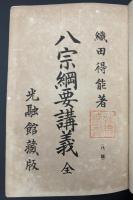 織田得能著
八宗綱要講義 全
光融館藏版